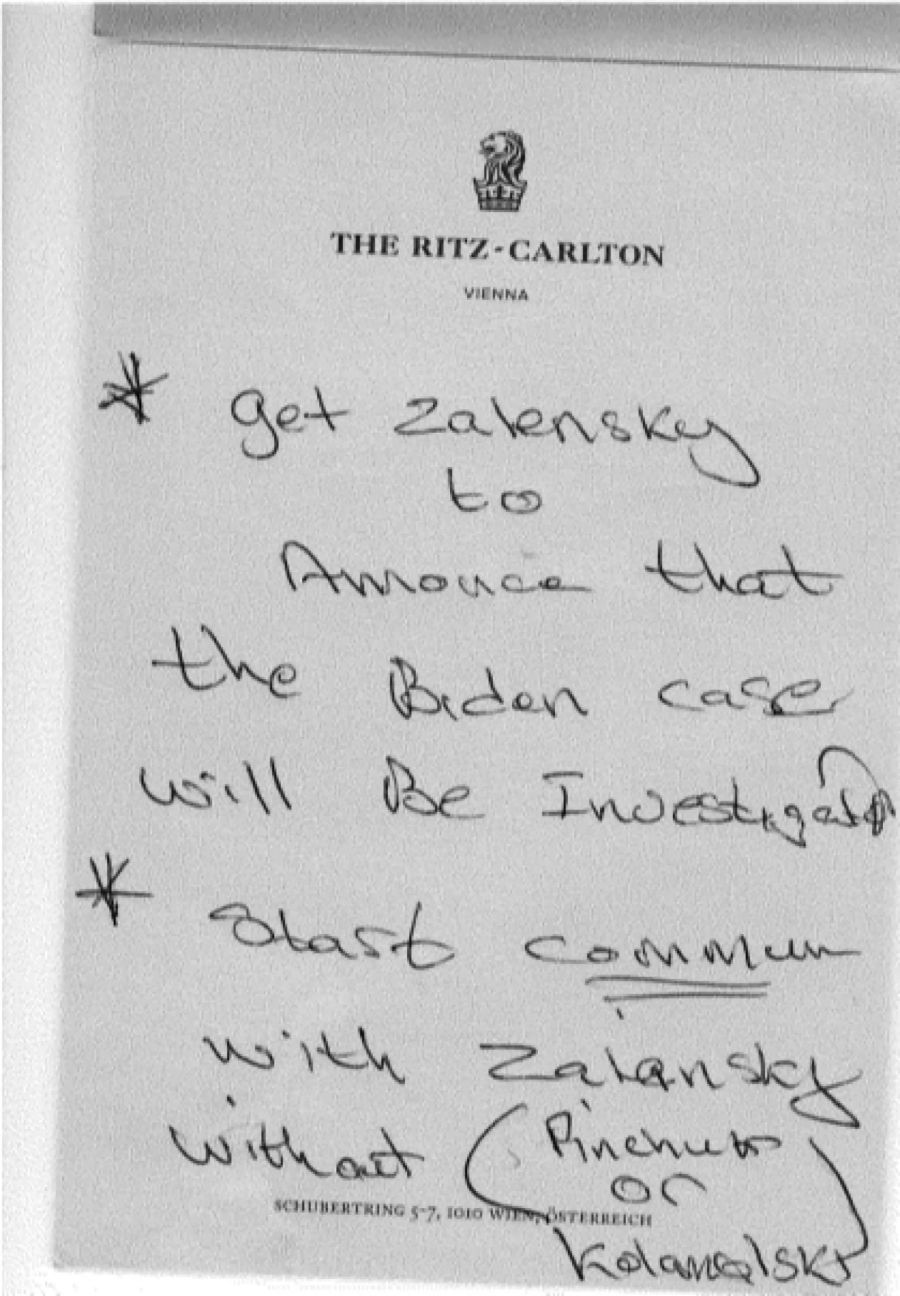 THE RITZ-CARLTON
VIENNA
* get Zalensky
to
Annouce that
the Biden case
will Be Investigated
* start commun
with Zalansky
without (Pinchuk
or
SCHUBERTRING 5-7, 1010 WIEN, ÖSTERREICH